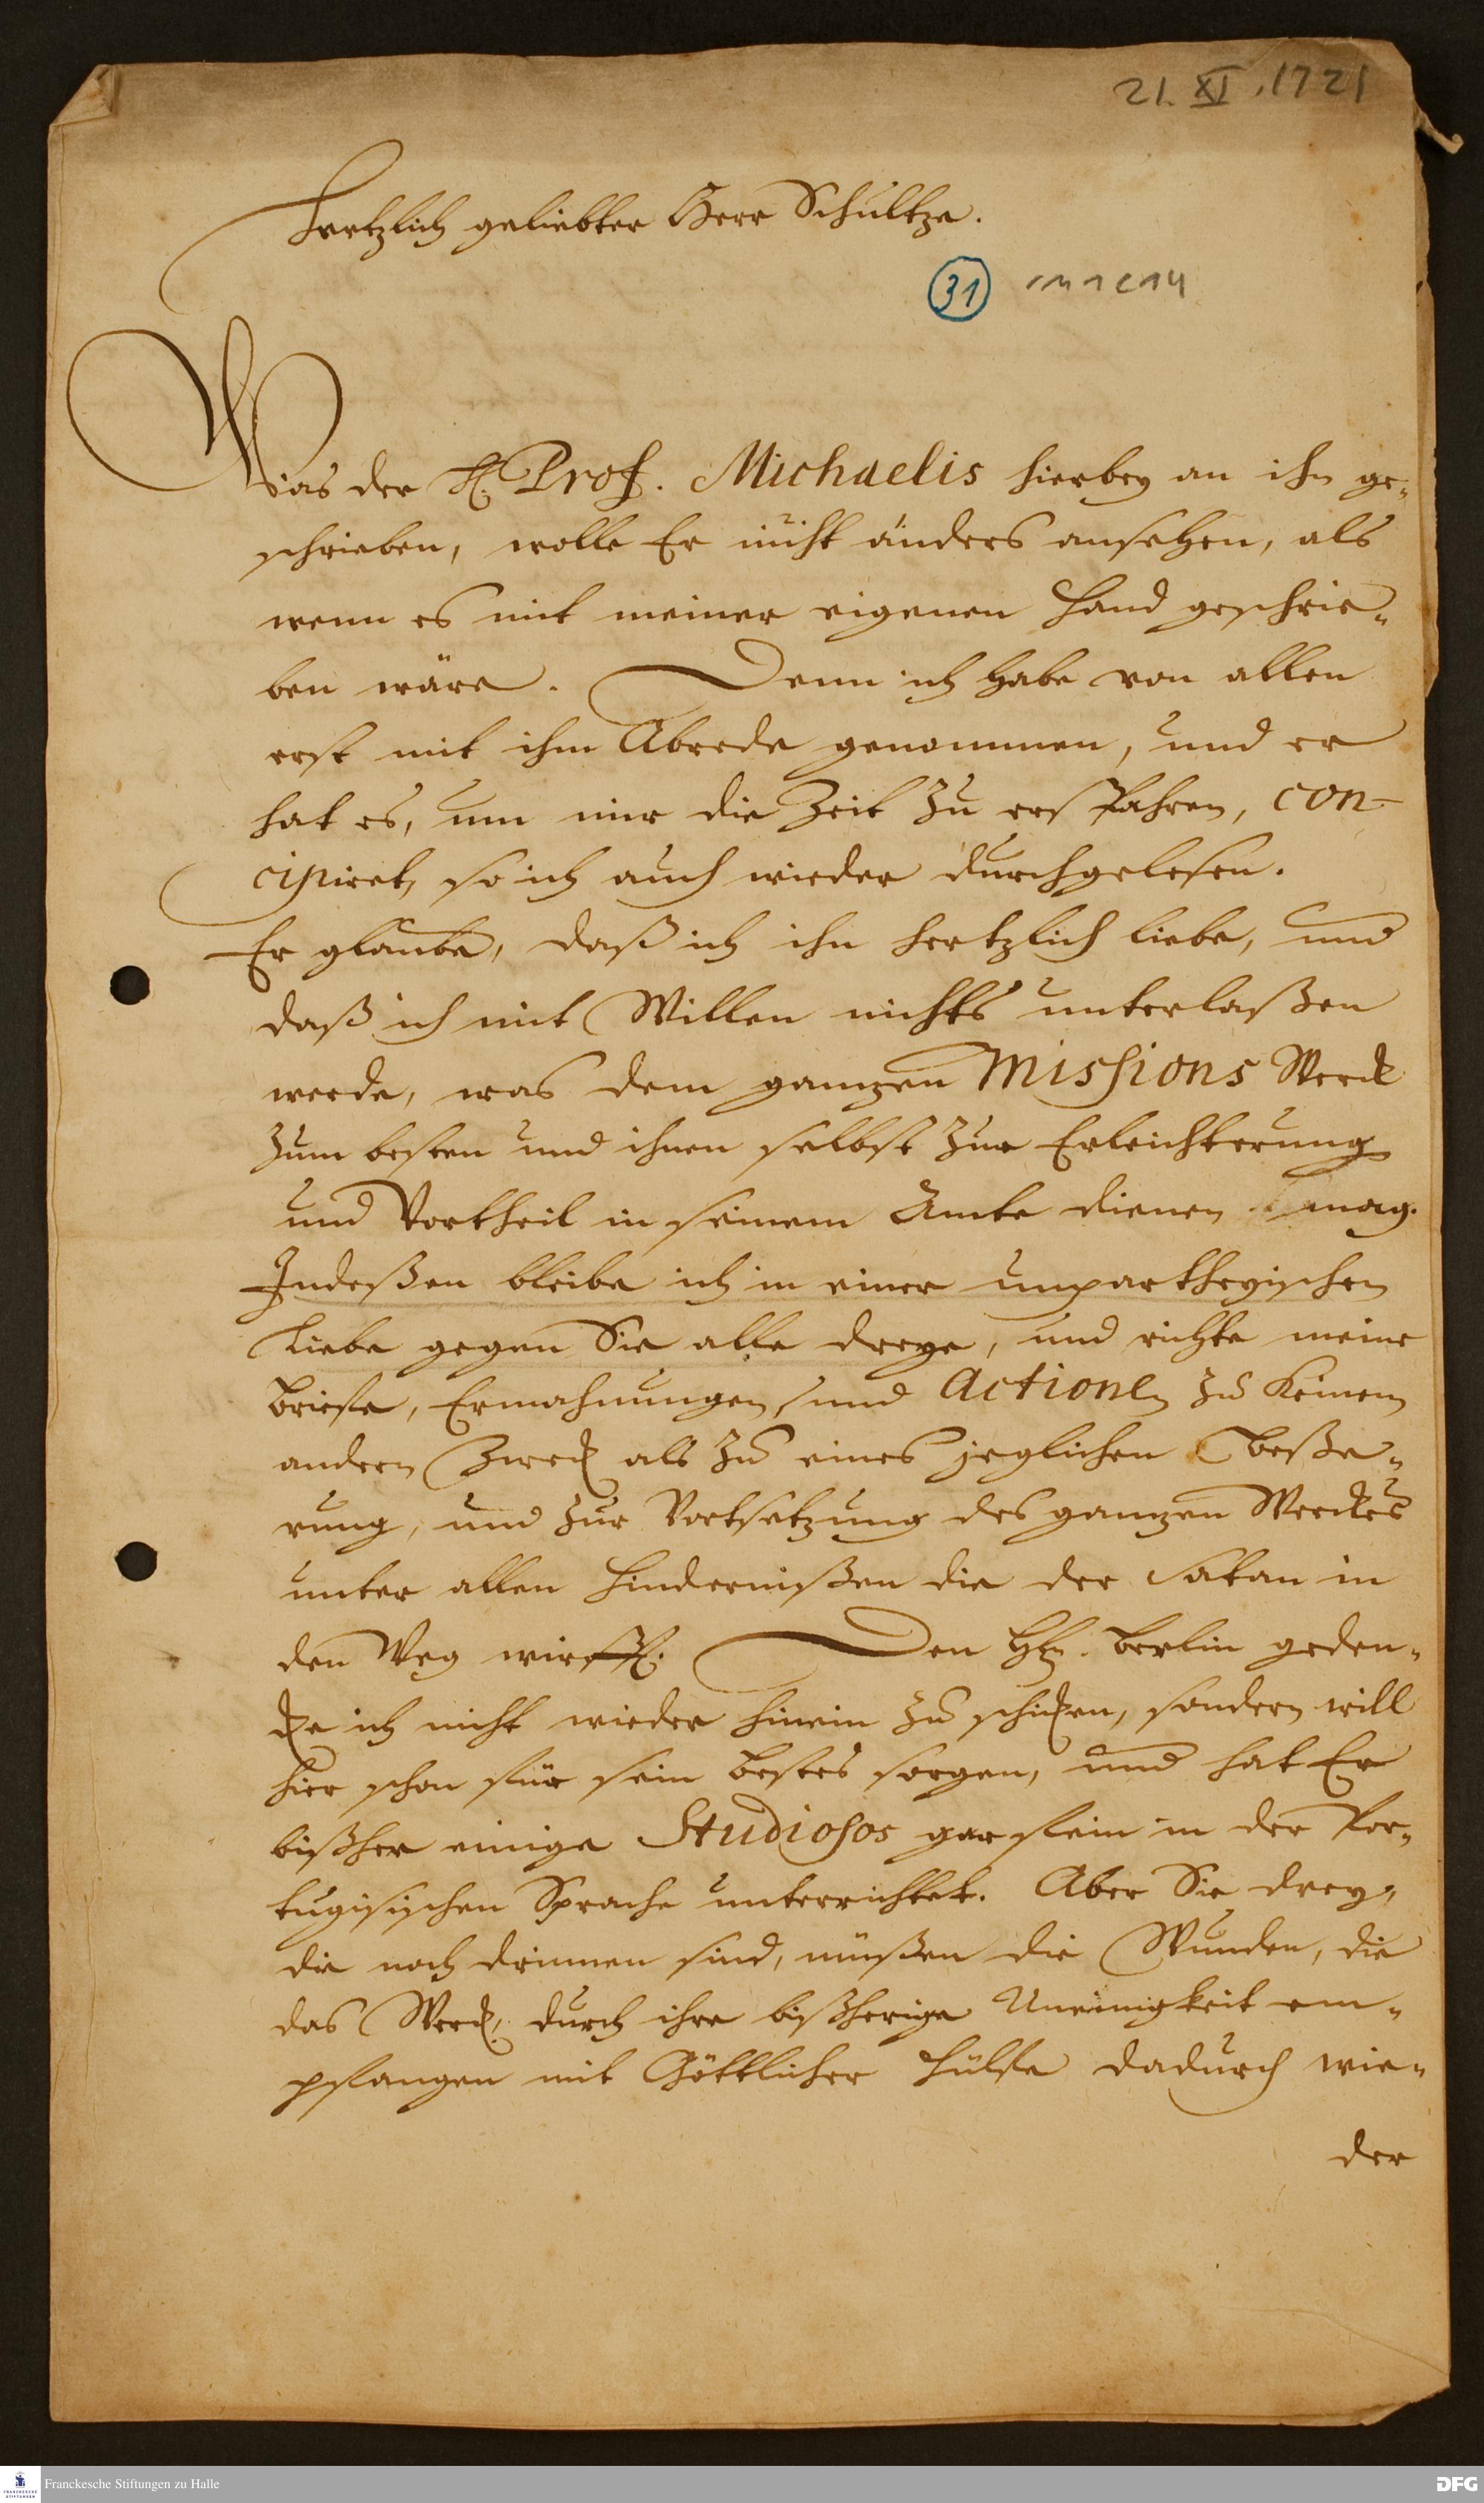 21. XI. 1721
Hertzlich geliebter Herr Schultze.
31 1 1 C 14
Was der H. Prof. Michaelis hierbey an ihn ge-
schrieben, wolle Er nicht anders ansehen, als
wenn es mit meiner eigenen Hand geschrie-
ben wäre. Denn ich habe von allen
erst mit ihm Abrede genommen, und er
hat es, um mir die Zeit zu erspahren, con-
cipiret, so ich auch wieder durchgelesen.
Er glaube, daß ich ihn hertzlich liebe, und
daß ich mit Willen nichts unterlaßen
werde, was dem gantzen Missions Werck
zum besten und ihnen selbst zur Erleichterung
und Vortheil in seinem Amte dienen mag.
Indeßen bleibe ich in einer unpartheyischen
Liebe gegen Sie alle dreye, und richte meine
Briefe, Ermahnungen und Actionen zu keinem
andern Zweck als zu eines jeglichen Beße-
rung, und zur Vortsetzung des gantzen Werckes
unter allen Hindernißen die der Satan in
den Weg wirfft. Den Hn. Berlin geden-
cke ich nicht wieder hinein zu schicken, sondern will
hier schon für sein Bestes sorgen, und hat Er
bißher einige Studiosos gar fein in der Por-
tugisischen Sprache unterrichtet. Aber Sie drey,
die noch drinnen sind, müßen die Wunden, die
das Werck durch ihre bißherige Uneinigkeit em-
pfangen mit Göttlicher Hülfe dadurch wie-
der
Franckesche Stiftungen zu Halle
DFG